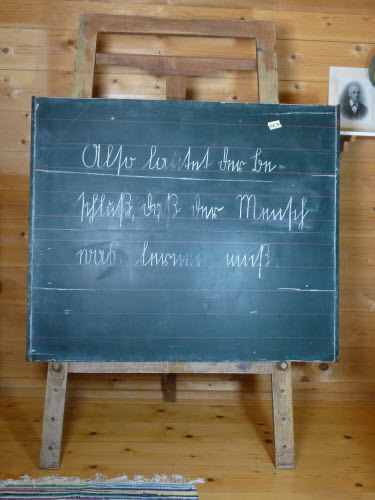 Also lautet der Be-
schluß, daß der Mensch
was lernen muß.